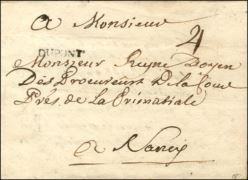 a Monsieur
4
DUPONT
Monsieur Huyne Doyen
Des Procureurs De la Cour
Près de la Primatiale
a Nancy